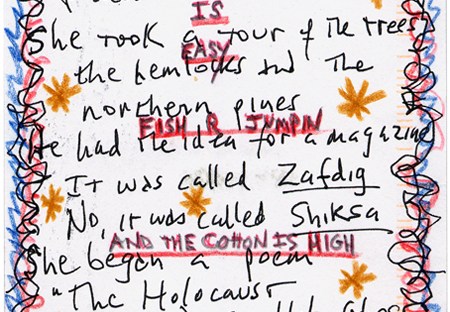 IS
She took a tour of the trees
EASY
the hemlocks and the
northern pines
FISH R JUMPIN
He had the idea for a magazine
It was called Zafdig
No, it was called Shiksa
AND THE COTTON IS HIGH
She began a poem
"The Holocaust